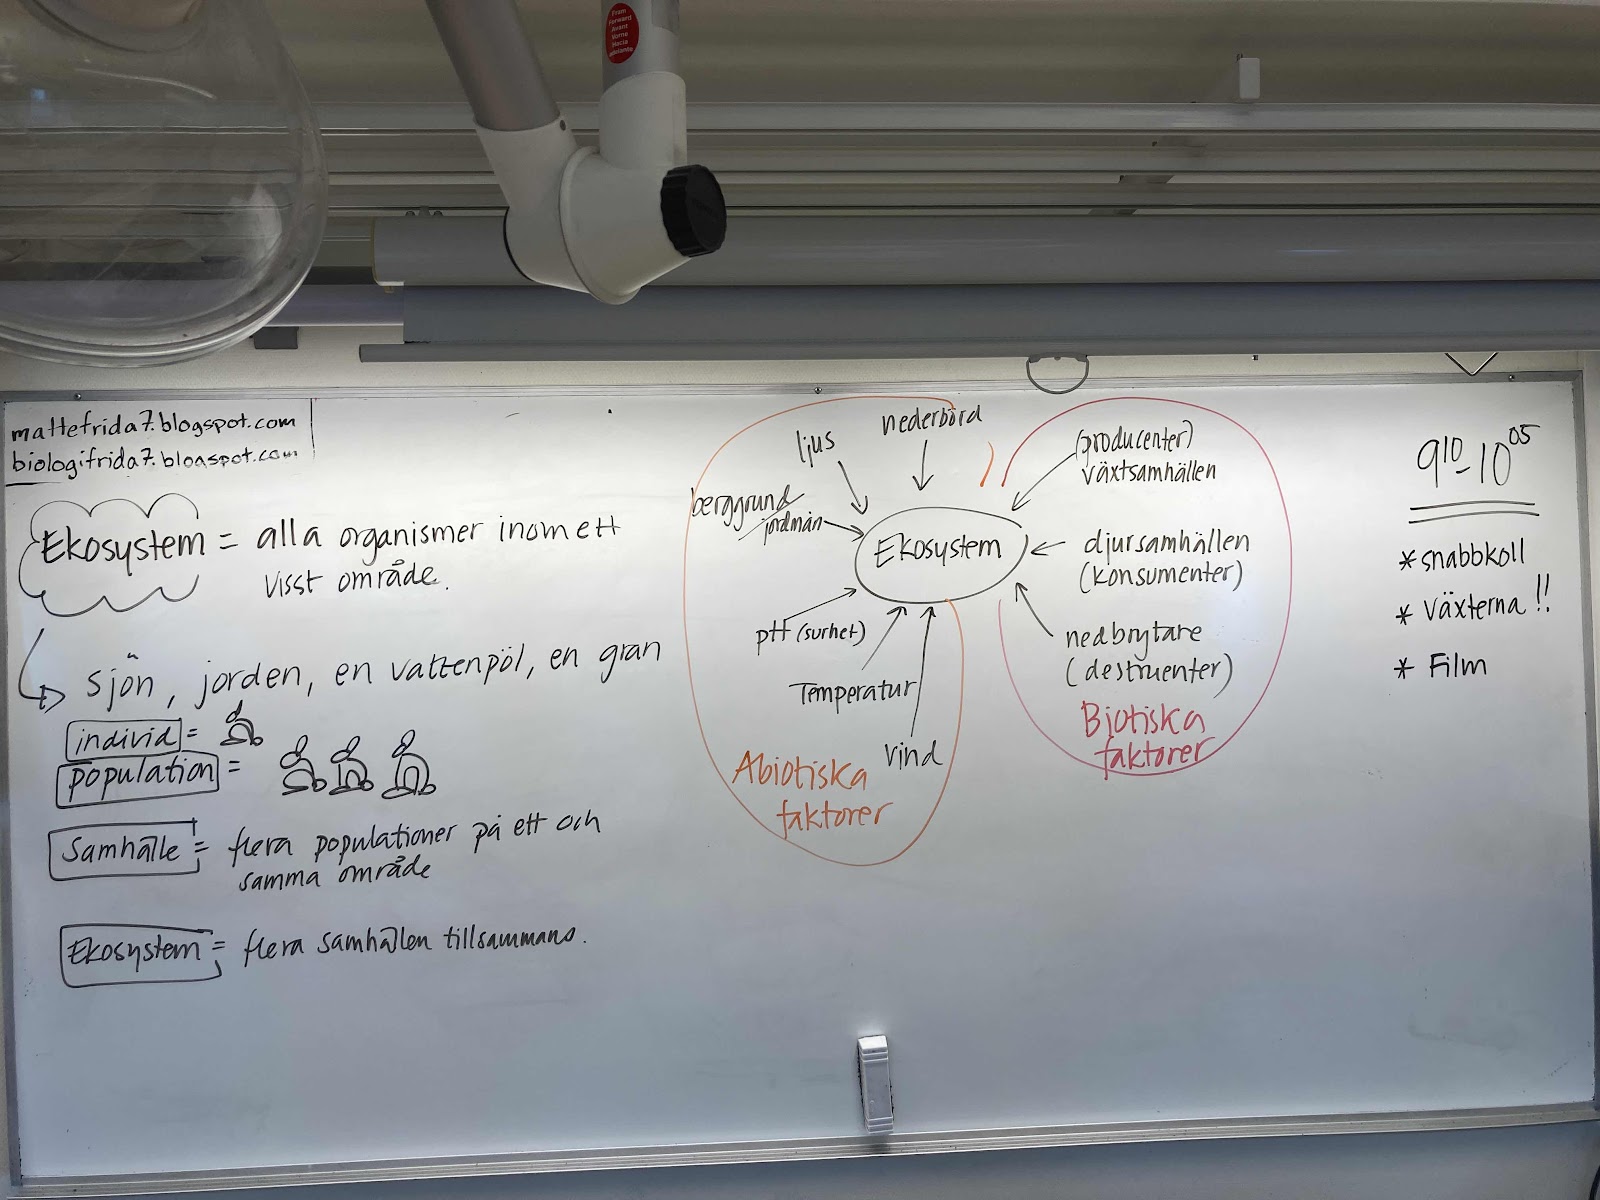 Fram
Forward
Avant
Vorne
Hacia
adelante
mattefrida7.blogspot.com
biologifrida7.blogspot.com
Ekosystem = alla organismer inom ett
visst område.
sjön, jorden, en vattenpöl, en gran
individ =
population =
Samhälle = flera populationer på ett och
samma område
Ekosystem = flera samhällen tillsammans.
ljus
nederbörd
berggrund
jordmån
Ekosystem
pH (surhet)
Temperatur
vind
Abiotiska
faktorer
(producenter)
växtsamhällen
djursamhällen
(konsumenter)
nedbrytare
(destruenter)
Biotiska
faktorer
9¹⁰-10⁰⁵
* snabbkoll
* växterna!!
* Film